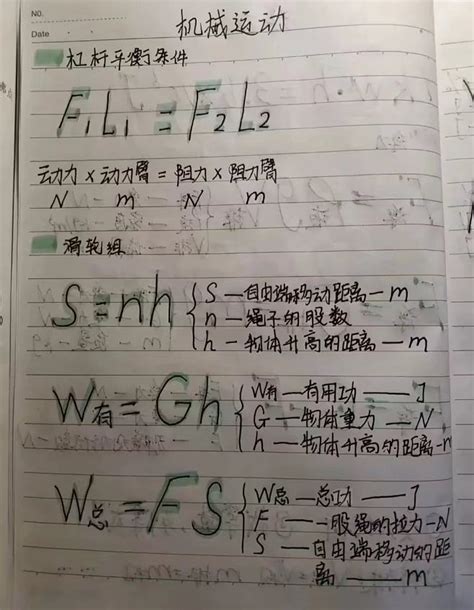 NO.
Date
机械运动
杠杆平衡条件
F₁L₁=F₂L₂
动力×动力臂=阻力×阻力臂
N m N m
滑轮组
S=nh
S—自由端移动距离—m
n—绳子的股数
h—物体升高的距离—m
W有=Gh
W有—有用功——J
G—物体重力—N
h—物体升高的距离-m
W总=FS
W总—总功——J
F—一股绳的拉力-N
S—自由端移动的距
离——m